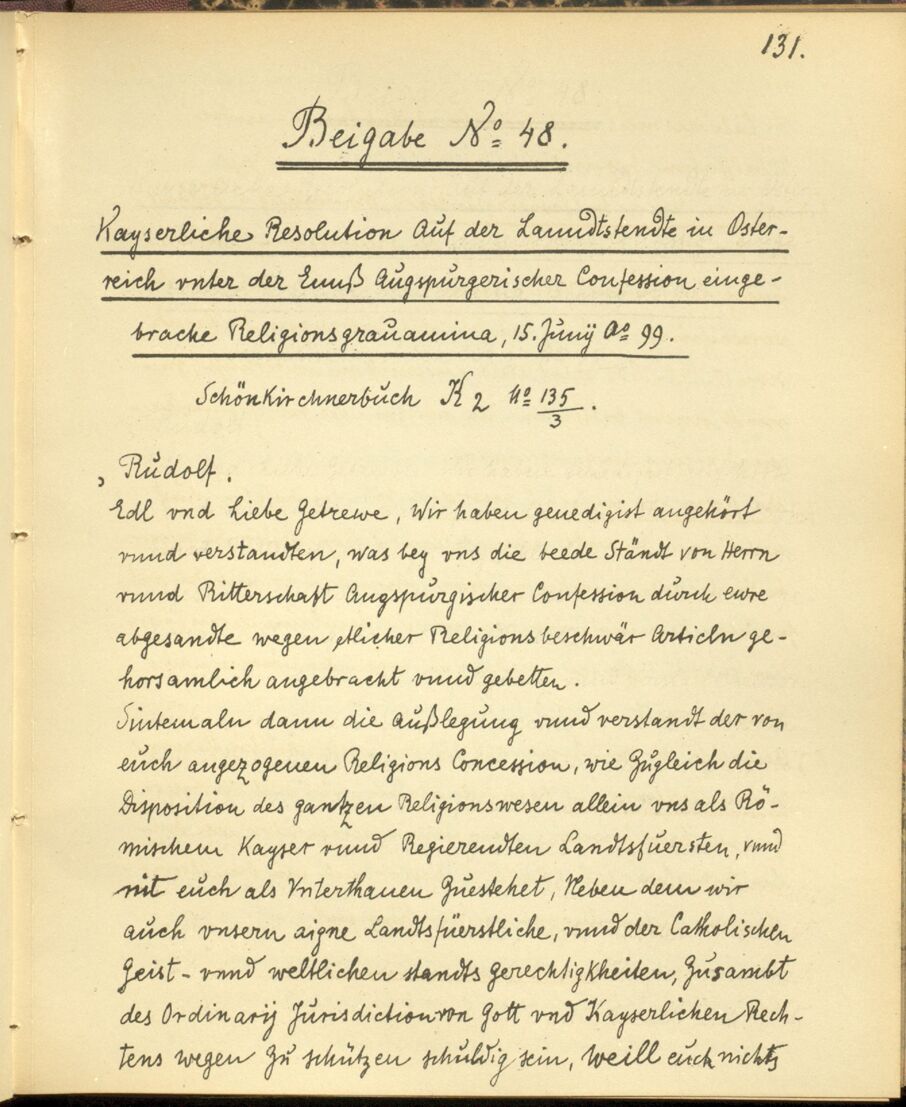 131.
Beigabe No 48.
Kayserliche Resolution Auf der Lanndtstendte in Oster-
reich vnter der Ennß Augspurgerischer Confession einge-
brache Religionsgrauamina, 15. Junÿ Ao 99.
Schönkirchnerbuch K 2 No 135/3.
„Rudolf.
Edl vnd Liebe Getrewe, Wir haben genedigist angehört
vnnd verstandten, was bey vns die beede Ständt von Herrn
vnnd Ritterschaft Augspurgischer Confession durch ewre
abgesandte wegen etlicher Religionsbeschwär Articln ge-
horsamlich angebracht vnnd gebetten.
Sintemaln dann die Außlegung vnnd verstandt der von
euch angezogenen Religions Concession, wie Zugleich die
Disposition des gantzen Religionswesen allein vns als Rö-
mischem Kayser vnnd Regierendten Landtsfuersten, vnnd
nit euch als Vnterthanen Zuestehet, Neben dem wir
auch vnsern aigne Landtsfüerstliche, vnnd der Catholischen
Geist- vnnd weltlichen standts gerechtigkheiten, Zusambt
des Ordinarij Jurisdiction von Gott vnd Kayserlichen Rech-
tens wegen Zu schützen schuldig sein, weill euch nichts